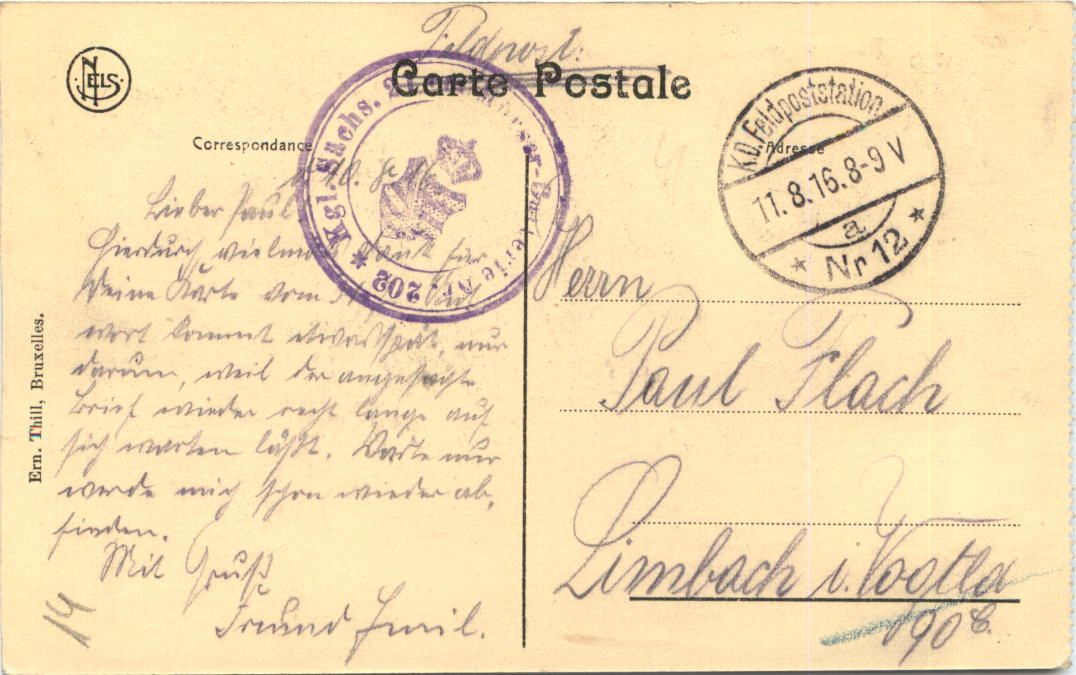 Feldpost.
Carte Postale
NELS
Correspondance
Adresse
Kgl. Sächs. Mörser-Batterie Nr. 202
K.D. Feldpoststation
11.8.16.8-9 V
a
* Nr 12 *
10.
Lieber Paul
Hierdurch vielmals Dank für
Deine Karte vom
wort kommt etwas spät, nur
darum, weil der angesagte
Brief wieder recht lange auf
sich warten läßt. Warte nur
werde mich schon wieder ab-
finden.
Mit Gruß
Freund Emil.
Herrn
Paul Flach
Limbach i. Vogtld
190 C.
14
Ern. Thill, Bruxelles.